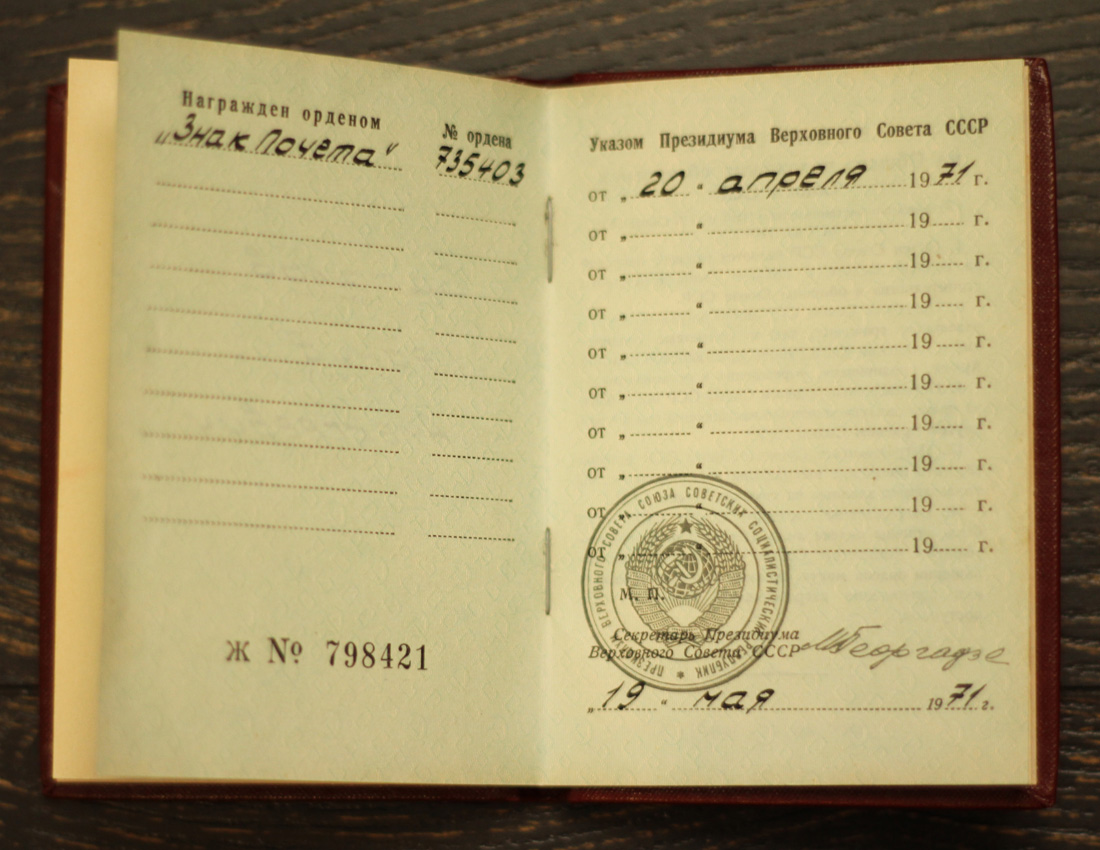 Награжден орденом
№ ордена
„Знак Почета“
735403
Ж № 798421
Указом Президиума Верховного Совета СССР
от „20“ апреля 1971 г.
от „ “ 19 г.
от „ “ 19 г.
от „ “ 19 г.
от „ “ 19 г.
от „ “ 19 г.
от „ “ 19 г.
от „ “ 19 г.
от „ “ 19 г.
от „ “ 19 г.
ПРЕЗИДИУМ ВЕРХОВНОГО СОВЕТА СОЮЗА СОВЕТСКИХ СОЦИАЛИСТИЧЕСКИХ РЕСПУБЛИК
М. П.
Секретарь Президиума
Верховного Совета СССР МГеоргадзе
„19“ мая 1971 г.